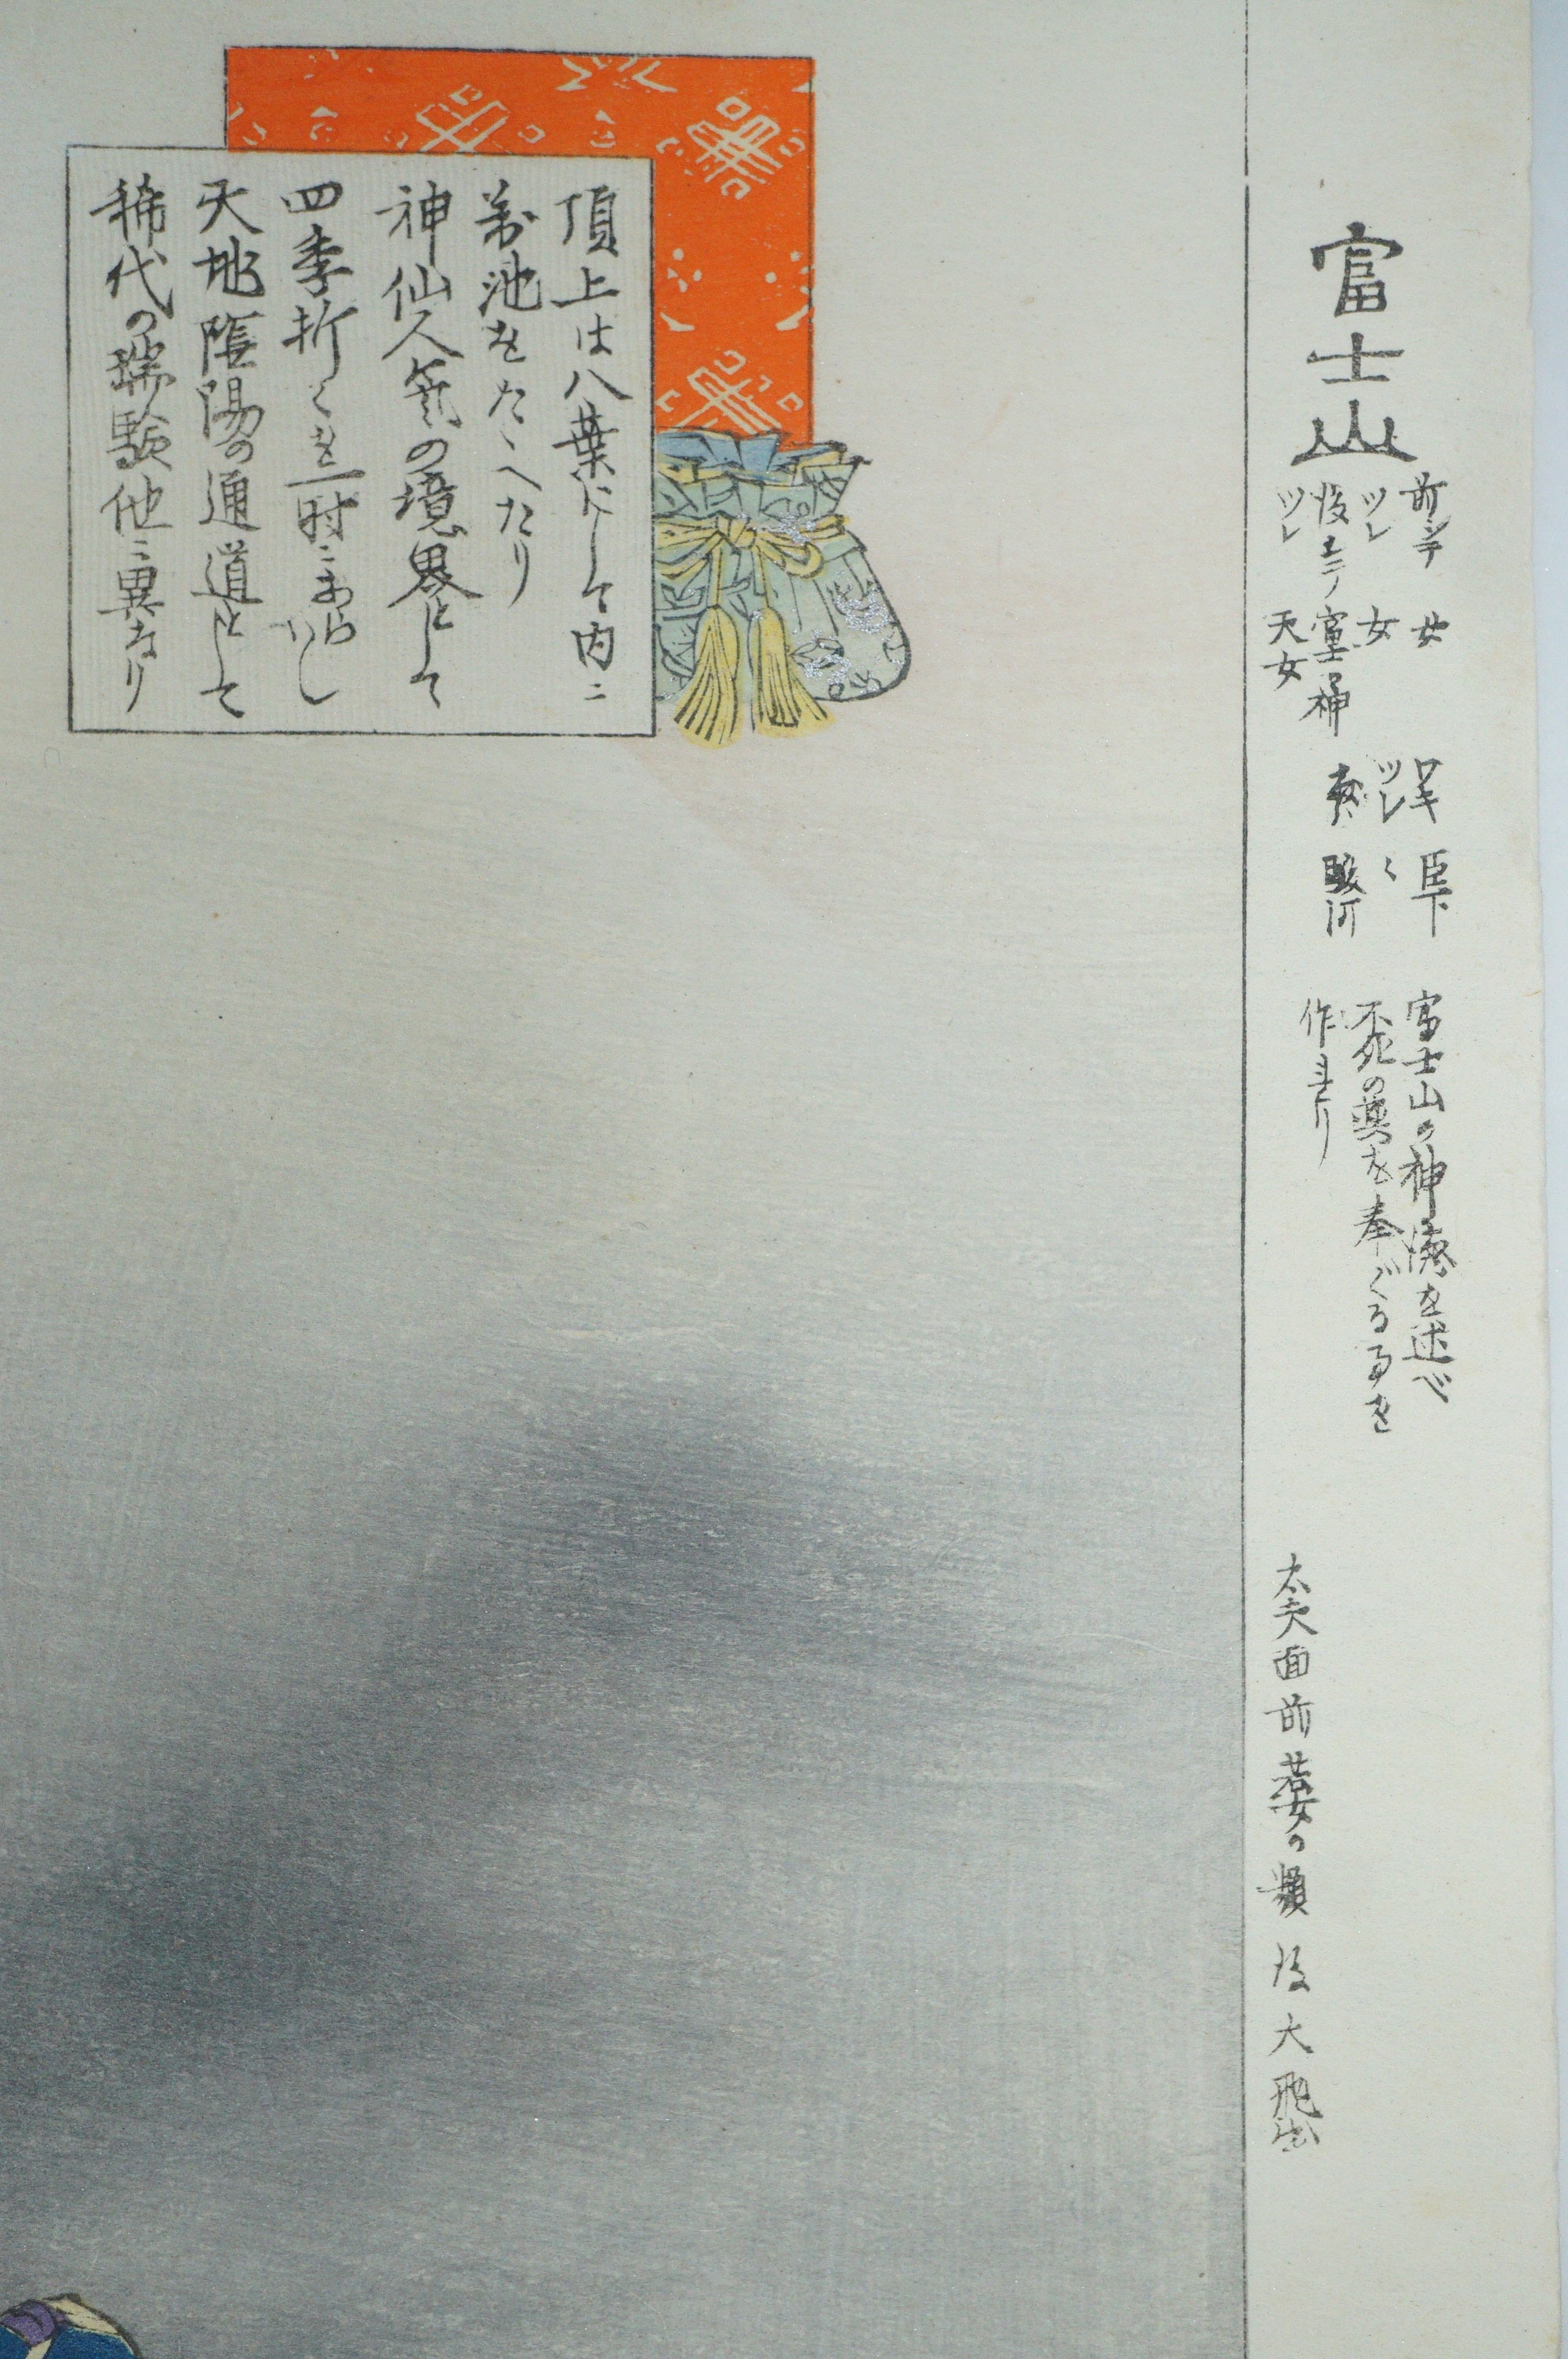 富士山
前シテ 女
ツレ 女
後シテ 富士ノ神
ツレ 天女
ワキ 臣下
ツレ 〻
処 駿河
富士山の神徳を述べ
不死の薬を奉ぐる事を
作れり
太夫面 前 若女の類 後 大飛出
頂上は八葉にして内ニ
満池をたゝへたり
神仙人気の境界として
四季折〱を一时ニあらハし
天地陰陽の通道として
稀代の瑞験他ニ異なり